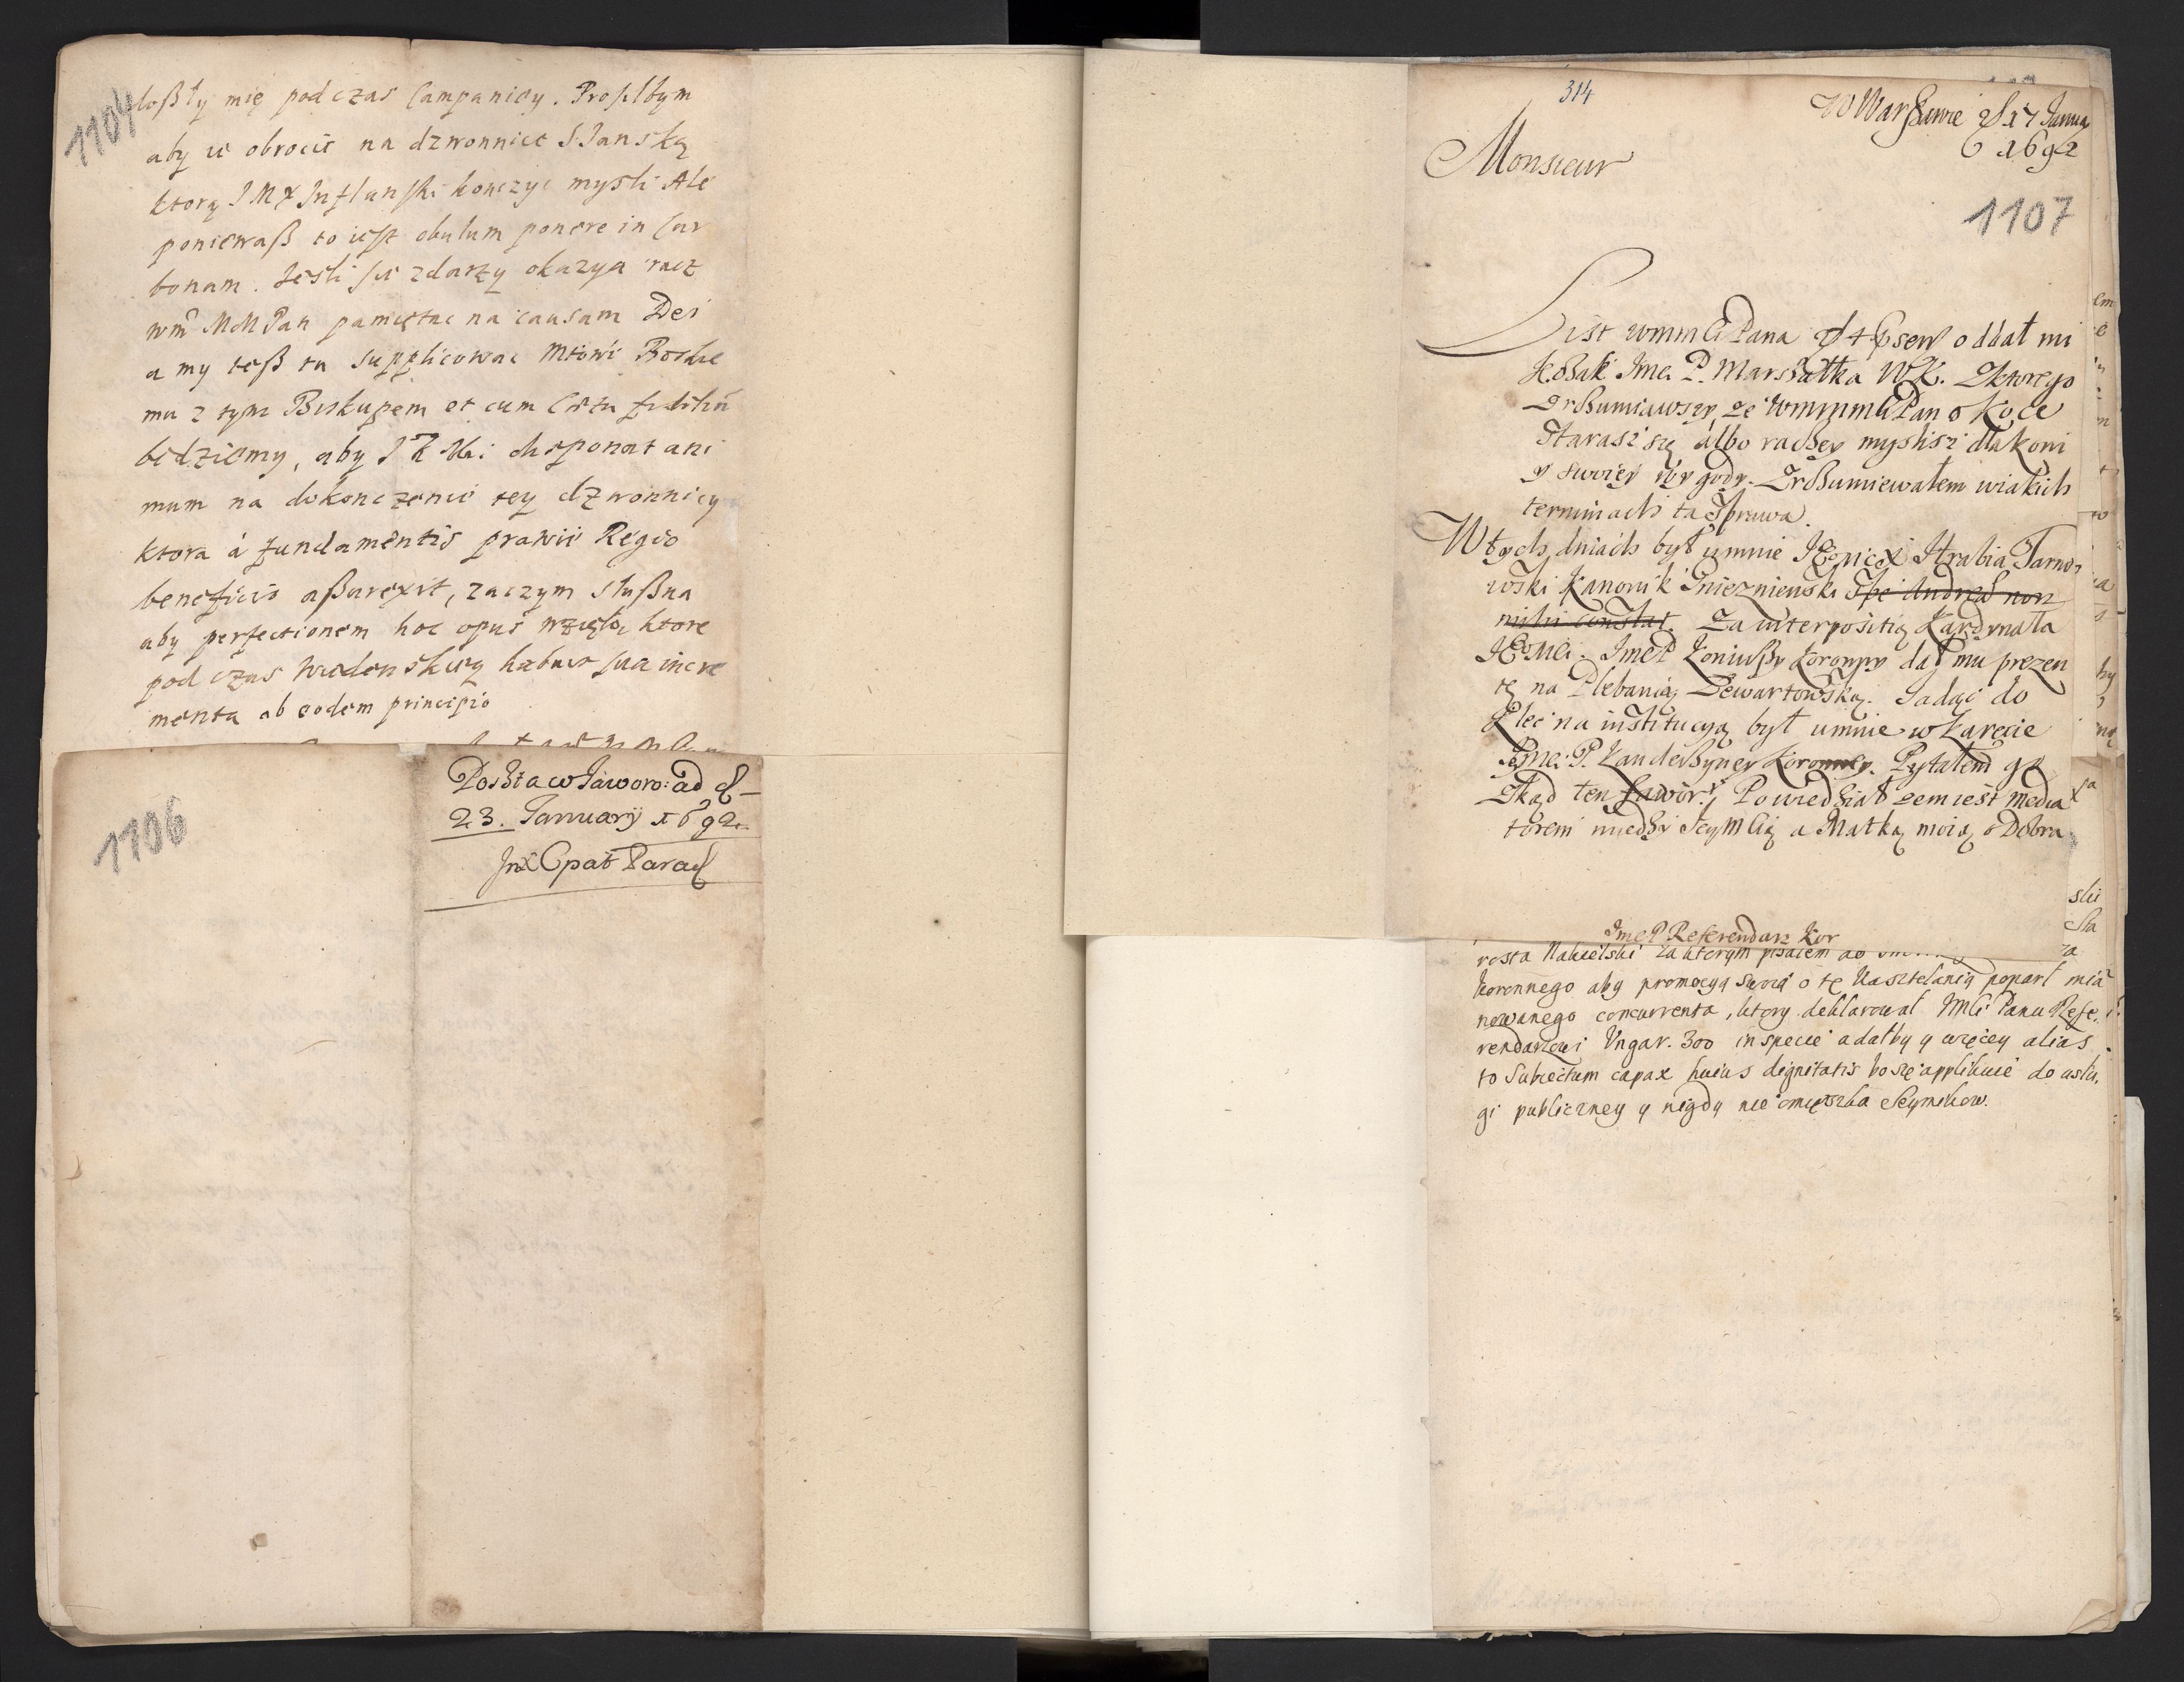 1104
doßły mię podczas Campaniey. Prosilbym
aby ie obrocic na dzwonnice S. Janską
ktorą J M X Inflanski konczyc mysli Ale
poniewaß to iest obulum ponere in Car
bonam. Jesli sie zdarzy okazya racz
wm MM Pan pamiętac na causam Dei
a my teß tu supplicowac Mtowi Boskie
mu z tym Biskupem et cum
będziemy, aby J K Mci disponat ani
mum na dokonczenie tey dzwonnicy
ktora á fundamentis prawie Regio
beneficio aßurexit, zaczym slußna
aby perfectionem hoc opus wzięło, ktore
pod czas habuit sua incre
menta ab eodem principio
1106
Poszta w Jaworo: ad d
23. January 1692.
JmX Opat Parad
314
W Warszawie d 17 January
1692
Monsieur
1107
List wmmCi Pana d 4 psen oddał mi
Kozak Jmci P. Marszałka WK. Z ktorego
zrozumiawszy, ze wmmmCi Pan o Koce
starasz się albo raczey myslisz dla koni
y swoiey wygody. Zrozumiewałem w iakich
terminach ta sprawa.
W tych dniach był u mnie Hrabia Tarno
wski Kanonik Gnieznienski Spe Andreas non
mihi constat. Za interpositią Kardynała
JEoMci. JmcP Koniuszy Koronny dał mu prezen
tę na Plebanią Lewartowską. Jadąc do
Kielc na institucyą był u mnie w karecie
Jmci P. Kanclerzyney Koronney. Pytałem go
Skąd ten fawor? Powiedział zem iest media
torem miedzy JeyMCią a Matką moią o Dobra
JmcP Referendarz Kor
rosta Nakielski za ktorym pisałem do
koronnego aby promocyą swoią o tę Kasztelanią poparł mia
nowanego concurrenta, ktory deklarował JMCi Panu Refe.
rendarzowi Vngar. 300 in specie a dałby y więcey alias
to Subiectum capax huius dignitatis bo się applikuie do usłu.
gi publiczney y nigdy nie omięszka Seymikow.